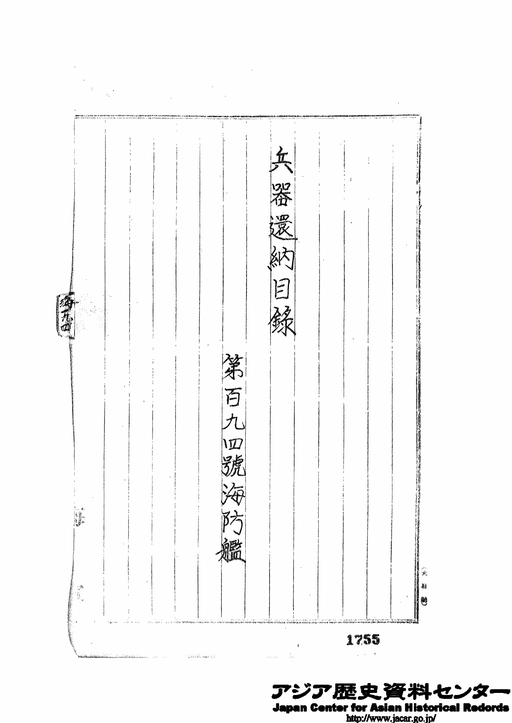 兵器還納目錄
第百九四號海防艦
海九四
1755
アジア歴史資料センター
Japan Center for Asian Historical Records
http://www.jacar.go.jp/